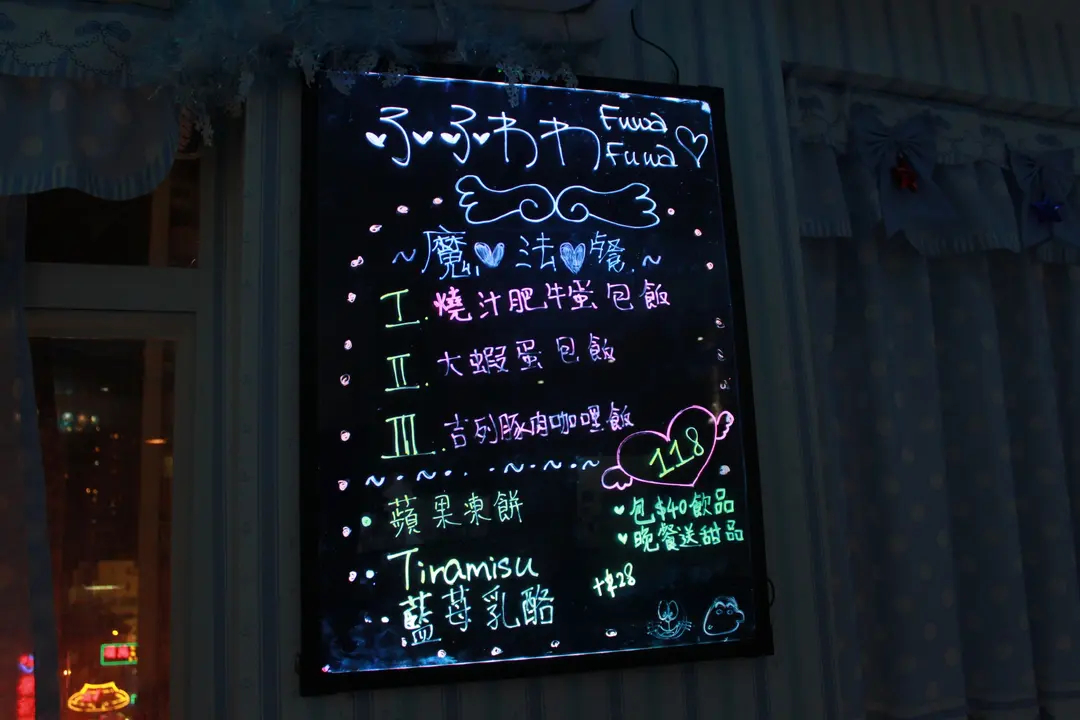 ふふわわ Fuwa
Fuwa
~魔法餐~
I. 燒汁肥牛蛋包飯
II. 大蝦蛋包飯
III. 吉列豚肉咖哩飯
118
蘋果凍餅
包$40飲品
晚餐送甜品
Tiramisu
+$28
藍莓乳酪